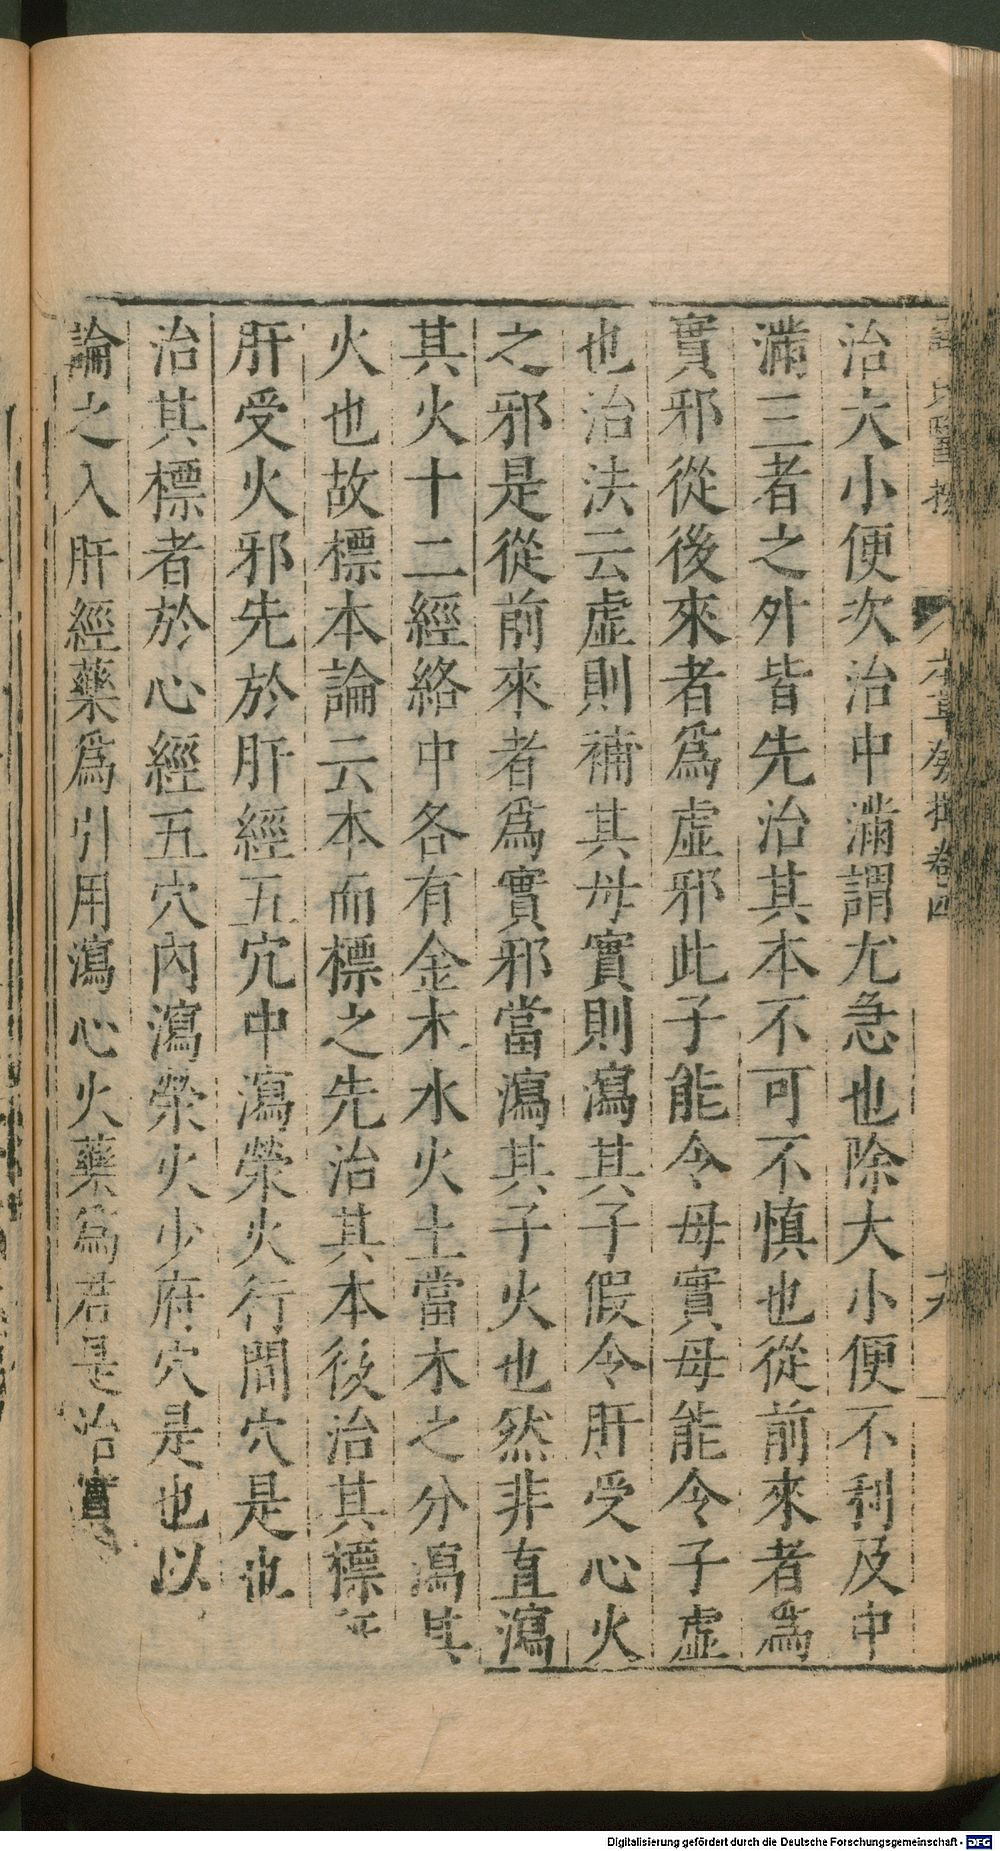 治大小便次治中滿謂尤急也除大小便不利及中
滿三者之外皆先治其本不可不慎也從前來者爲
實邪從後來者爲虛邪此子能令母實母能令子虛
也治法云虛則補其母實則瀉其子假令肝受心火
之邪是從前來者爲實邪當瀉其子火也然非直瀉
其火十二經絡中各有金木水火土當木之分瀉其
火也故標本論云本而標之先治其本後治其標
肝受火邪先於肝經五穴中瀉滎火行間穴是也
治其標者於心經五穴內瀉滎火少府穴是也以
論之入肝經藥爲引用瀉心火藥爲君是治實
Digitalisierung gefördert durch die Deutsche Forschungsgemeinschaft - DFG